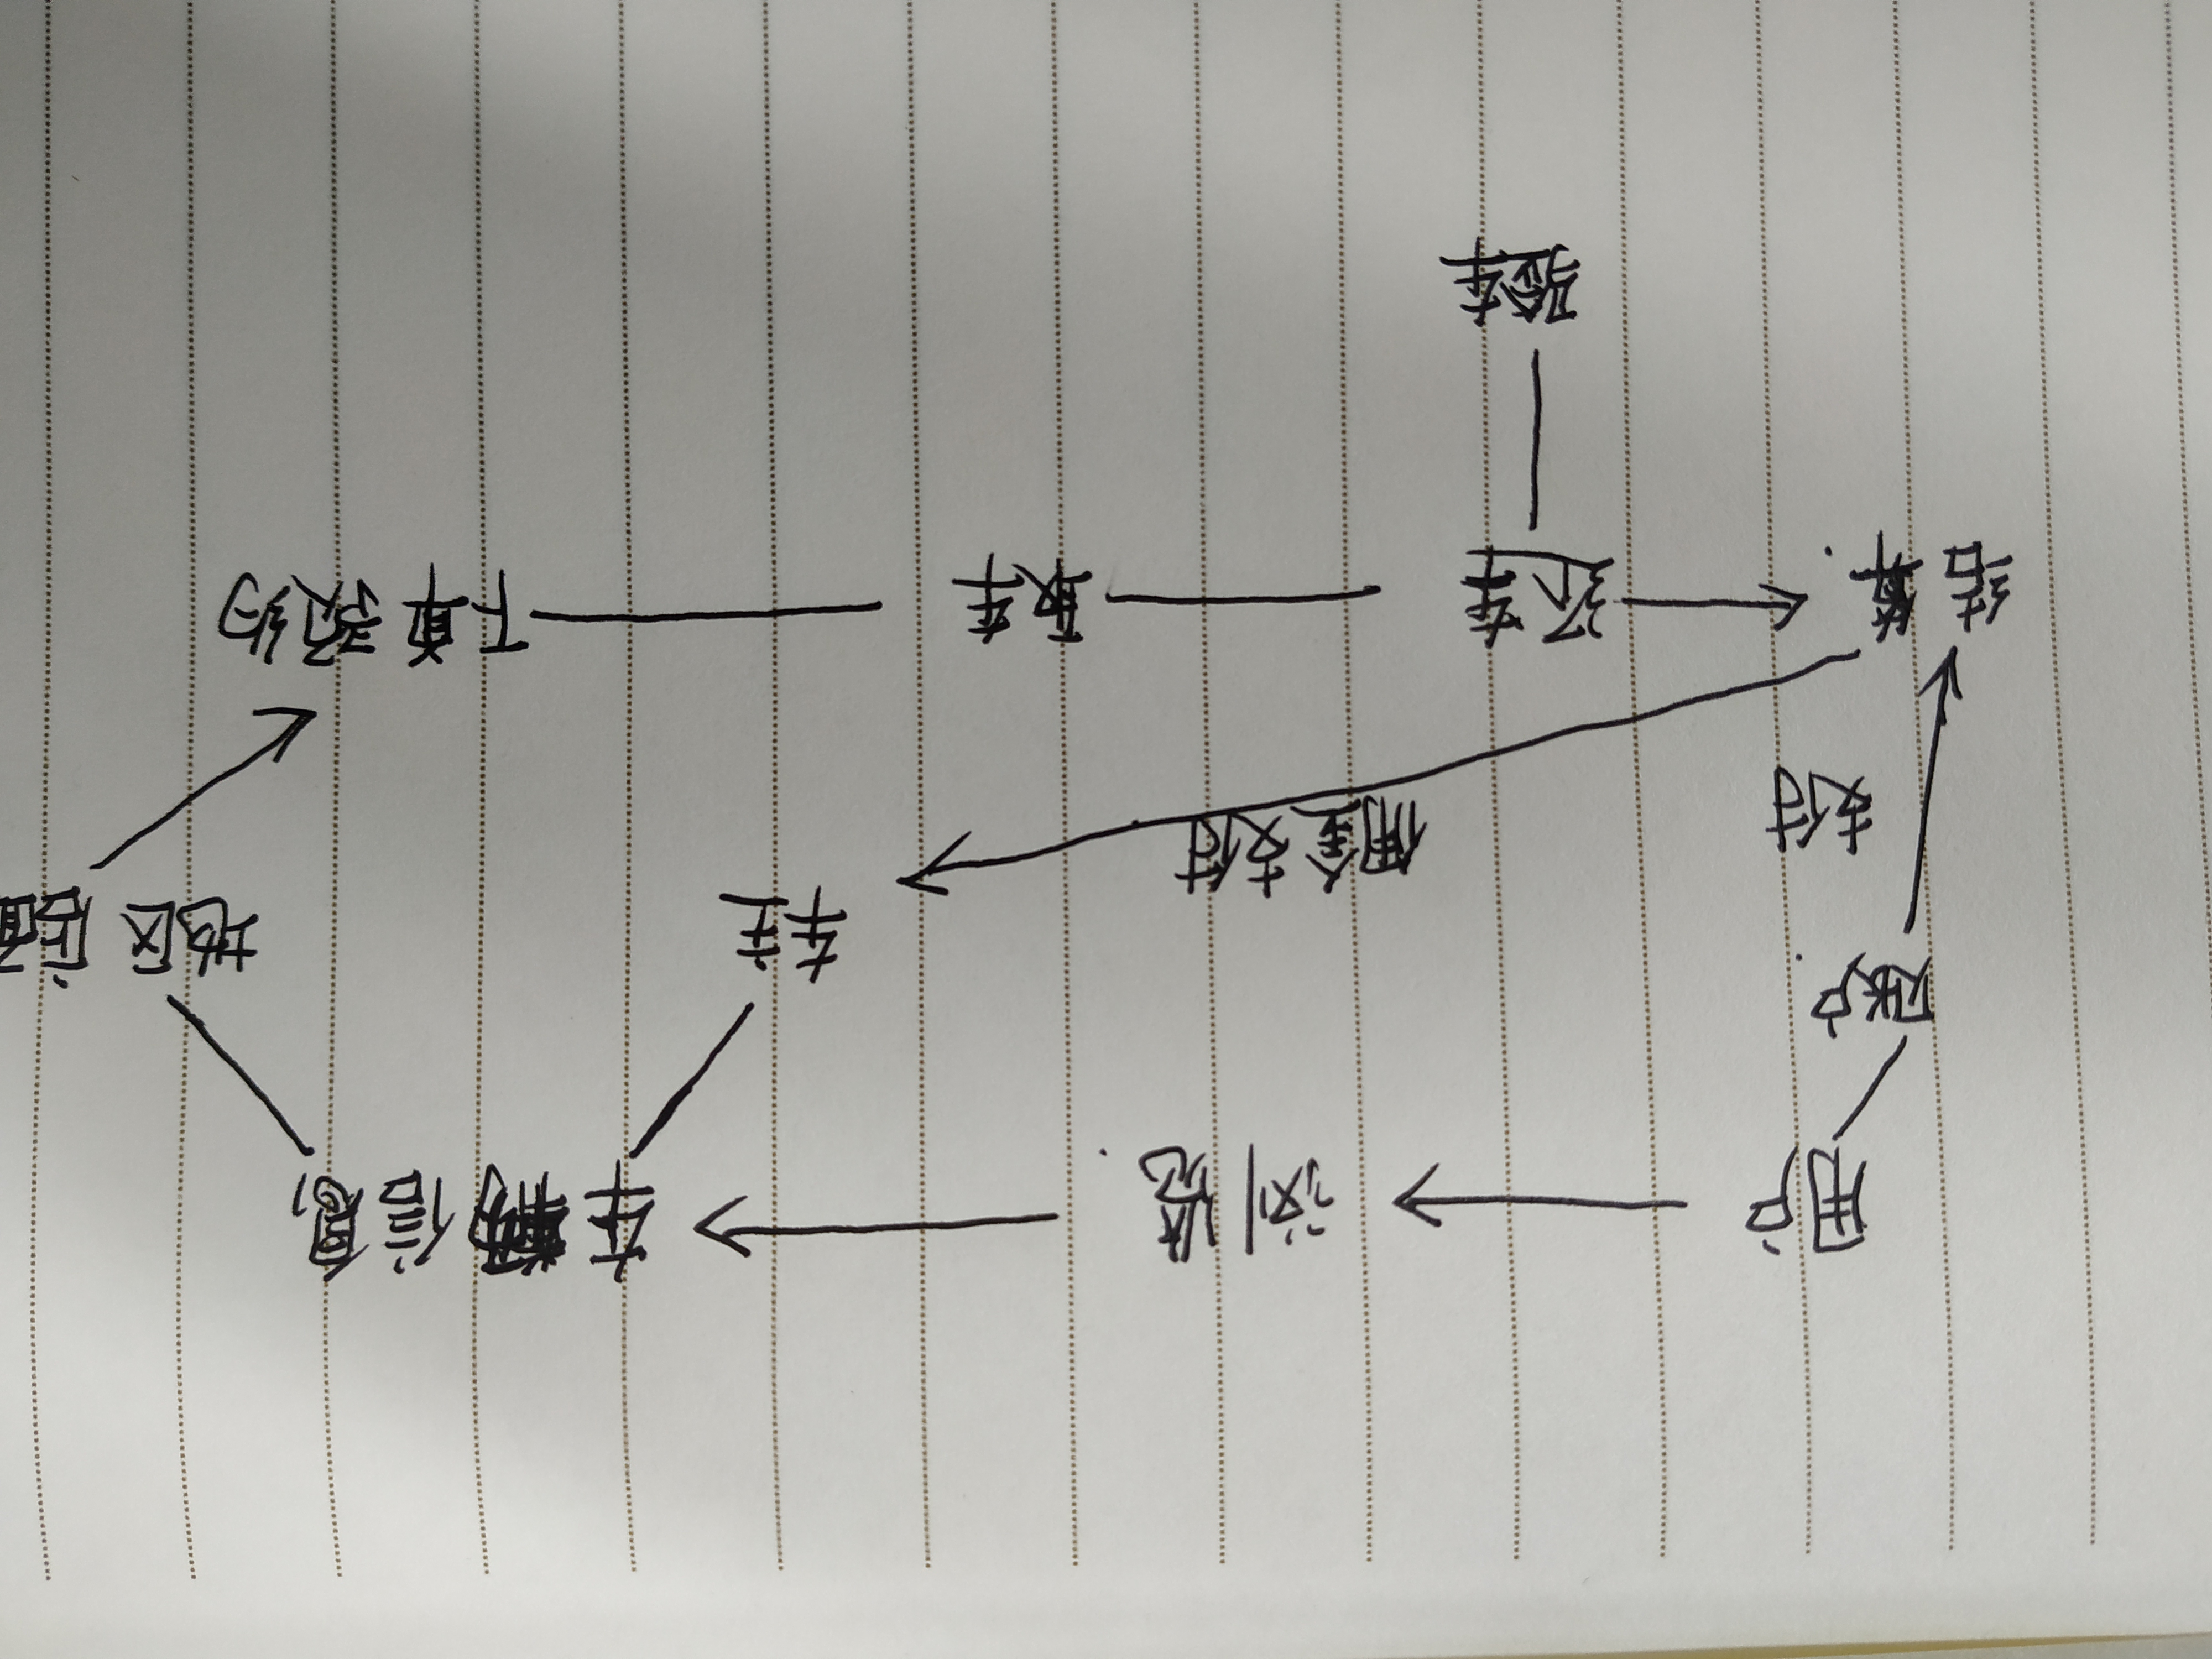 用户 浏览. 车辆信息
账户.
车主 地区 店面
支付 佣金支付
结算. 还车 取车 下单预约
验车